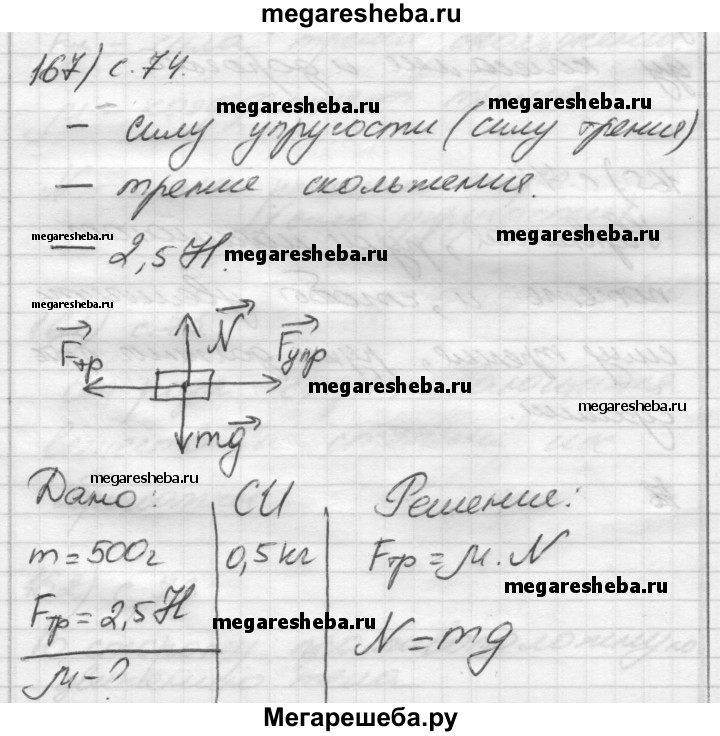 megaresheba.ru
167) с. 74.
megaresheba.ru megaresheba.ru
— силу упругости (силу трения)
— трение скольжения.
megaresheba.ru megaresheba.ru
— 2,5 Н. megaresheba.ru
megaresheba.ru
N
Fтр Fупр
megaresheba.ru
megaresheba.ru
mg
megaresheba.ru
Дано: СИ Решение:
m = 500 г 0,5 кг Fтр = μ · N
megaresheba.ru
Fтр = 2,5 Н megaresheba.ru N = mg
μ - ?
Мегарешеба.ру